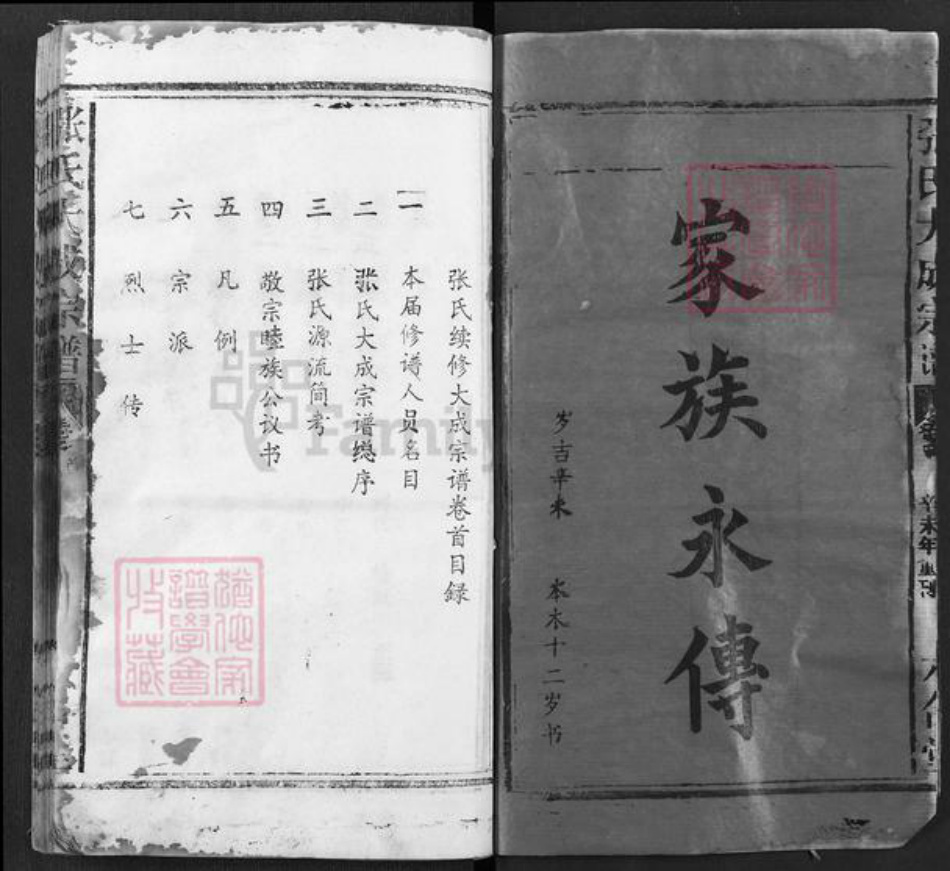 张氏大成宗谱
辛未年
家族永傳
岁吉辛未 本木十二岁书
张氏续修大成宗谱卷首目録
一 本届修谱人员名目
二 张氏大成宗谱总序
三 张氏源流简考
四 敬宗睦族公议书
五 凡例
六 宗派
七 烈士传
张氏大成宗谱
猶他家譜學會收藏
Family